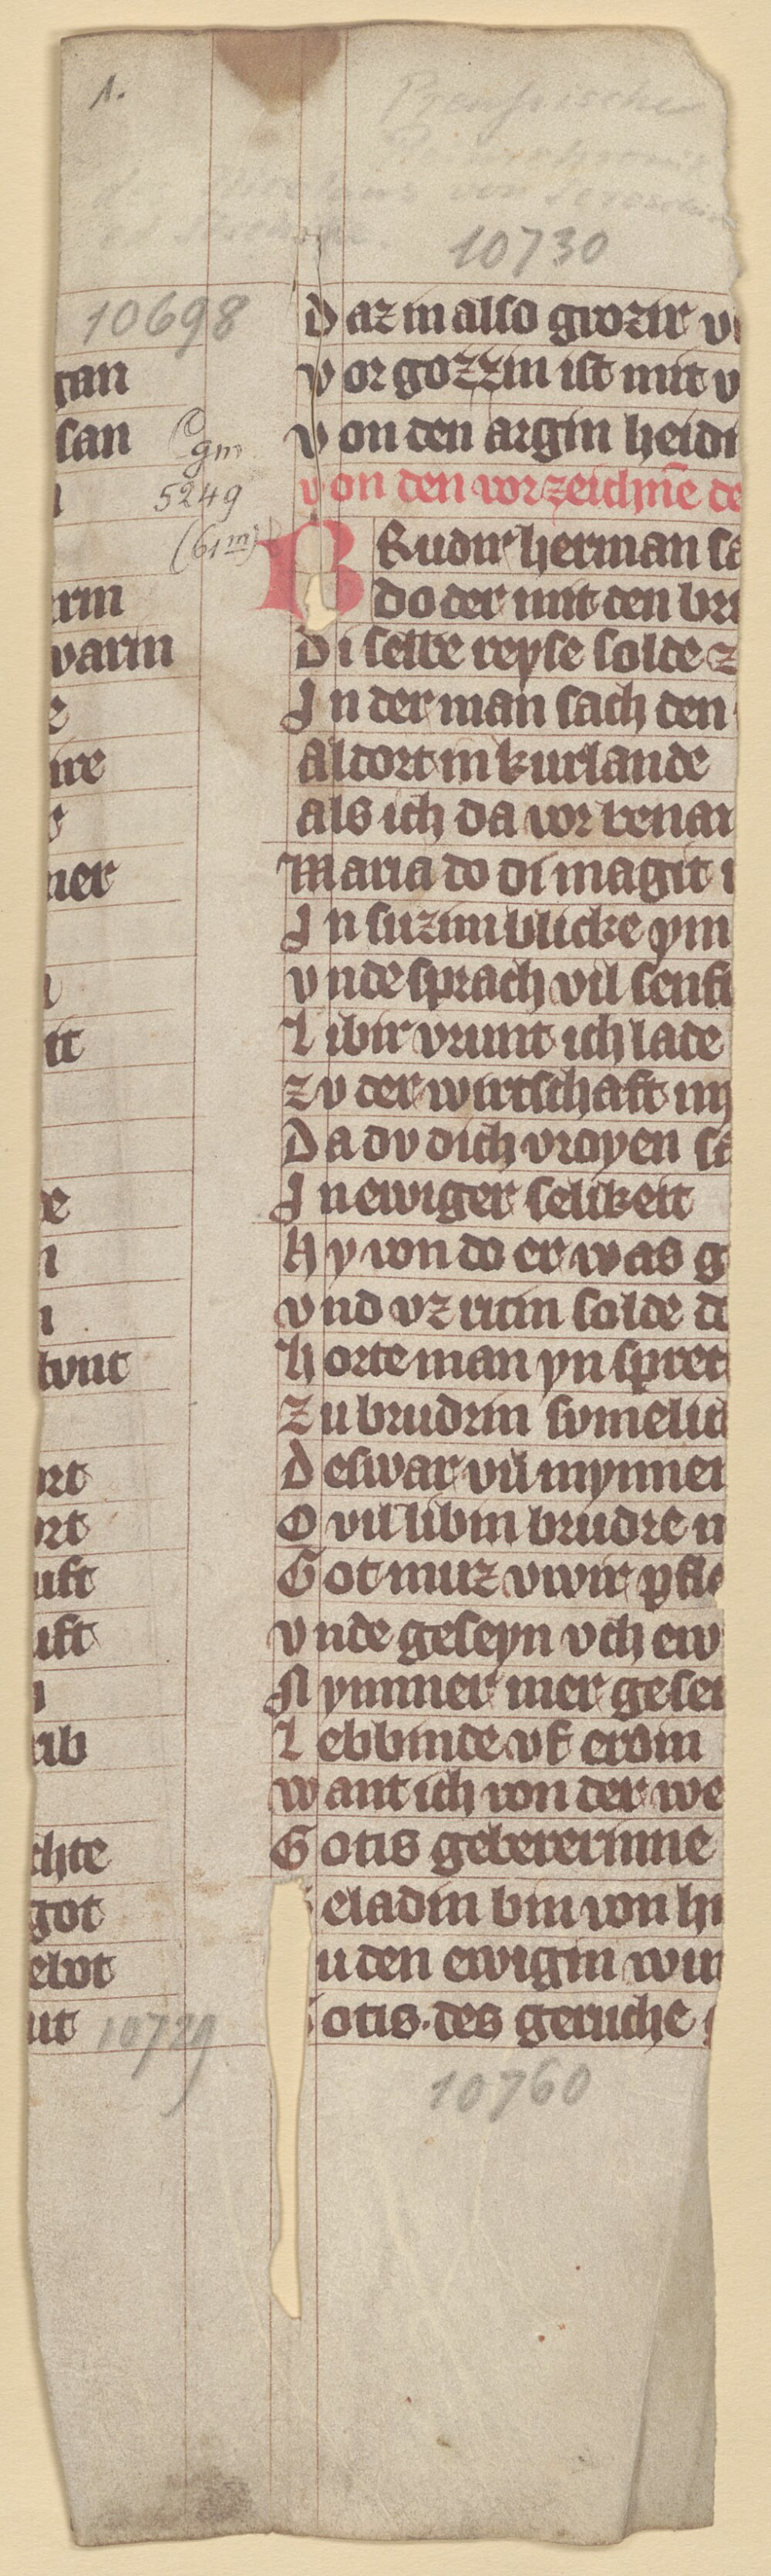 1.
Preussische
10730
10698
gan
san
Cgm
5249
(61m)
rm
varm
e
ire
ner
tt
e
tvnt
ort
ort
uft
uft
rib
chte
got
ebot
ut
10729
Daz in also gwozir v
Vorgozzin ist mit v
Von den argin heidi
Von den vorzeichne de
BRudir herman sa
do der mit den bru
Di selbe reyse solde z
In der man sach den
Aldort in kurlande
Als ich da vor benan
Maria do di magit
In suzim blicke ym
Vnde sprach vil senft
Libir vrunt ich lade
Zv der wirtschaft my
Da dv dich vroyen sa
In ewiger selikeit
Hy von do er was g
Vnd vz ritin solde d
Horte man yn sprec
Zu brudrin svmelich
Deswar vil mynnen
O vil libin brudre m
Got muz vwir pfle
Vnde geseyn vch ew
Nymmer mer gesei
Lebbinde vf erdin
Want ich von der we
Gotis gebererinne
eladin bin von hi
u den ewigin wun
otis. des geruche
10760